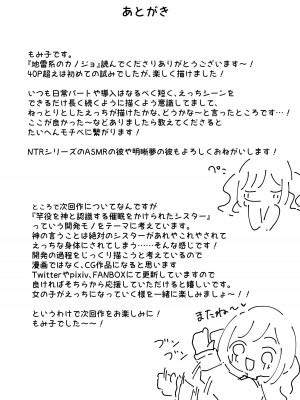 あとがき
もみ子です。
『地雷系のカノジョ』読んでくださりありがとうございます～！
40P超えは初めての試みでしたが、楽しく描けました！
いつも日常パートや導入はなるべく短く、えっちシーンを
できるだけ長く続くように描くよう意識してまして、
ねっとりとしたえっちが描けたかな、どうかな～と言ったところです…！
ここが良かった～などありましたら教えてくださると
たいへんモチベに繋がります！
NTRシリーズのASMRの彼や明晰夢の彼もよろしくおねがいします！
ペコッ
ところで次回作についてなんですが
『竿役を神と認識する催眠をかけられたシスター』
っていう開発モノをテーマに考えています。
神の言うことは絶対のシスターがあれやこれやされて
えっちな身体にされてしまう……そんな感じです！
開発の過程をじっくり描こうと考えているので
漫画ではなく、CG作品になると思います
Twitterやpixiv、FANBOXにて更新していますので
良ければそちらから応援していただけると嬉しいです。
女の子がえっちになっていく様を一緒に楽しみましょ～！！
というわけで次回作をお楽しみに！
もみ子でした～～！
またね～
ブンブン
ブンブン